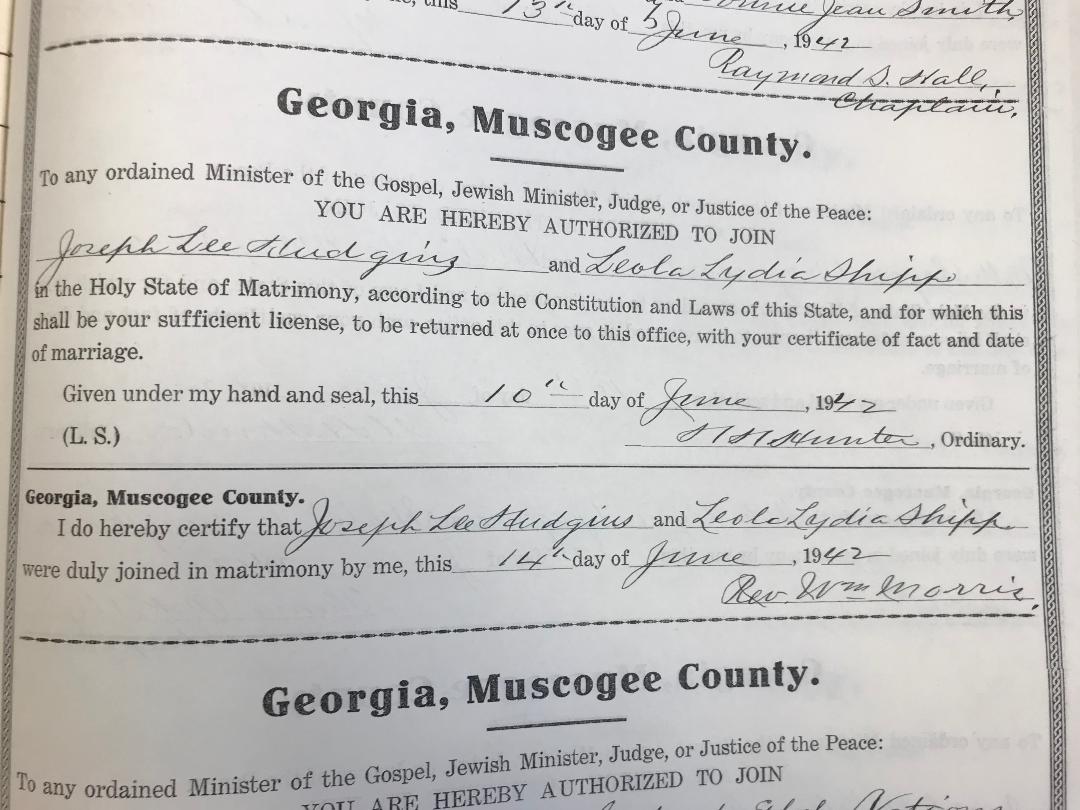 this 13" day of June, 1942
Jean Smith,
Raymond S. Hall,
Chaplain.
Georgia, Muscogee County.
To any ordained Minister of the Gospel, Jewish Minister, Judge, or Justice of the Peace:
YOU ARE HEREBY AUTHORIZED TO JOIN
Joseph Lee Hudgins and Leola Lydia Shipp
in the Holy State of Matrimony, according to the Constitution and Laws of this State, and for which this
shall be your sufficient license, to be returned at once to this office, with your certificate of fact and date
of marriage.
Given under my hand and seal, this 10" day of June, 1942
(L. S.) H H Hunter, Ordinary.
Georgia, Muscogee County.
I do hereby certify that Joseph Lee Hudgins and Leola Lydia Shipp
were duly joined in matrimony by me, this 14" day of June, 1942
Rev. Wm Morris.
Georgia, Muscogee County.
To any ordained Minister of the Gospel, Jewish Minister, Judge, or Justice of the Peace:
YOU ARE HEREBY AUTHORIZED TO JOIN